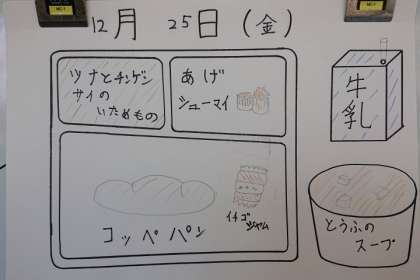 12月 25日(金)
ツナとチンゲン
サイの
いためもの
あげ
シューマイ
牛
乳
コッペパン
イチゴ
ジャム
とうふの
スープ